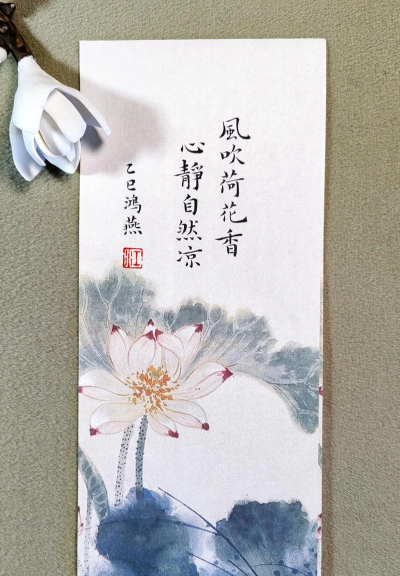 風吹荷花香
心靜自然凉
乙巳鴻燕
江